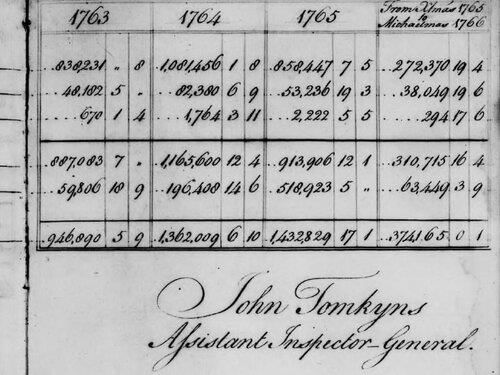 1763 1764 1765 From Xmas 1765
to
Michaelmas 1766
838,231 " 8 1,081,456 1 8 858,447 7 5 272,370 19 4
48,182 5 " 82,380 6 9 53,236 19 3 38,049 19 6
670 1 4 1,764 3 11 2,222 5 5 294 17 6
887,083 7 " 1,165,600 12 4 913,906 12 1 310,715 16 4
59,806 18 9 196,408 14 6 518,923 5 " 63,449 3 9
946,890 5 9 1,362,009 6 10 1,432,829 17 1 374,165 0 1
John Tomkyns
Aſsistant Inspector-General.